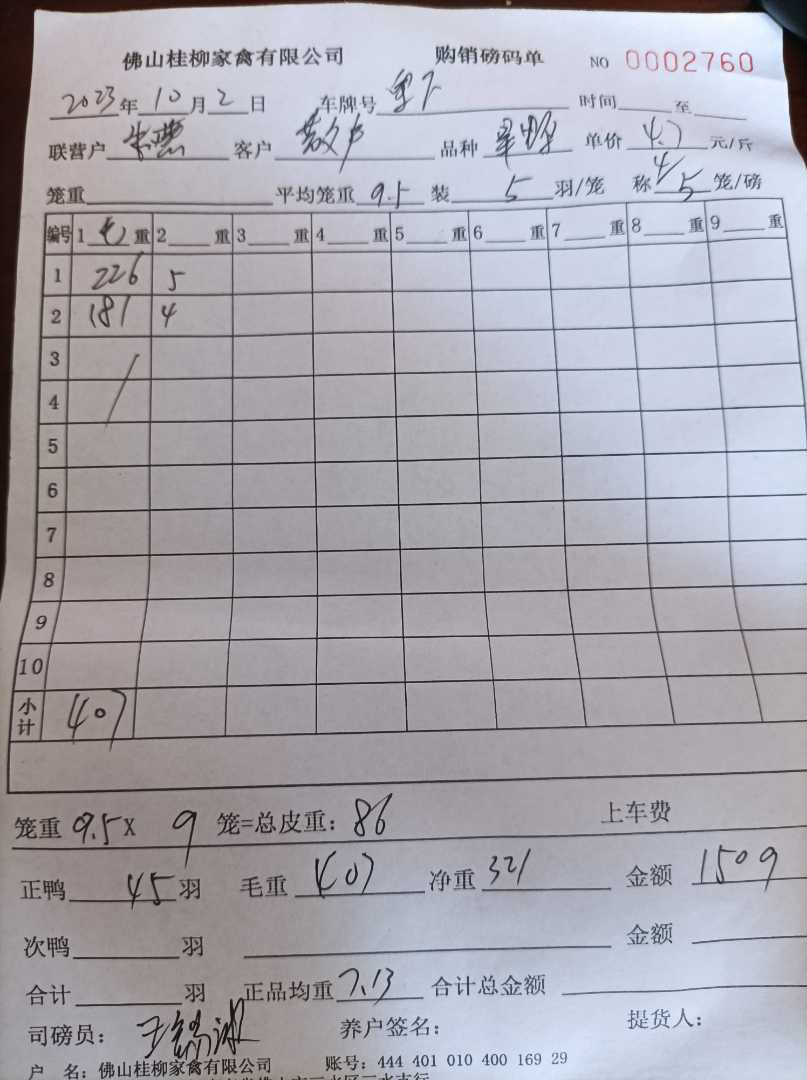 佛山桂柳家禽有限公司 购销磅码单 NO 0002760
2023年10月2日 车牌号 时间 至
联营户 客户 散户 品种 单价 4.7 元/斤
笼重 平均笼重 9.5 装 5 羽/笼 称 4/5 笼/磅
编号 1 毛 重 2 重 3 重 4 重 5 重 6 重 7 重 8 重 9 重
1 226 5
2 181 4
3
4
5
6
7
8
9
10
小计 407
笼重 9.5 X 9 笼=总皮重: 86 上车费
正鸭 45 羽 毛重 407 净重 321 金额 1509
次鸭 羽 金额
合计 羽 正品均重 7.13 合计总金额
司磅员: 养户签名: 提货人:
户 名: 佛山桂柳家禽有限公司 账号: 444 401 010 400 169 29